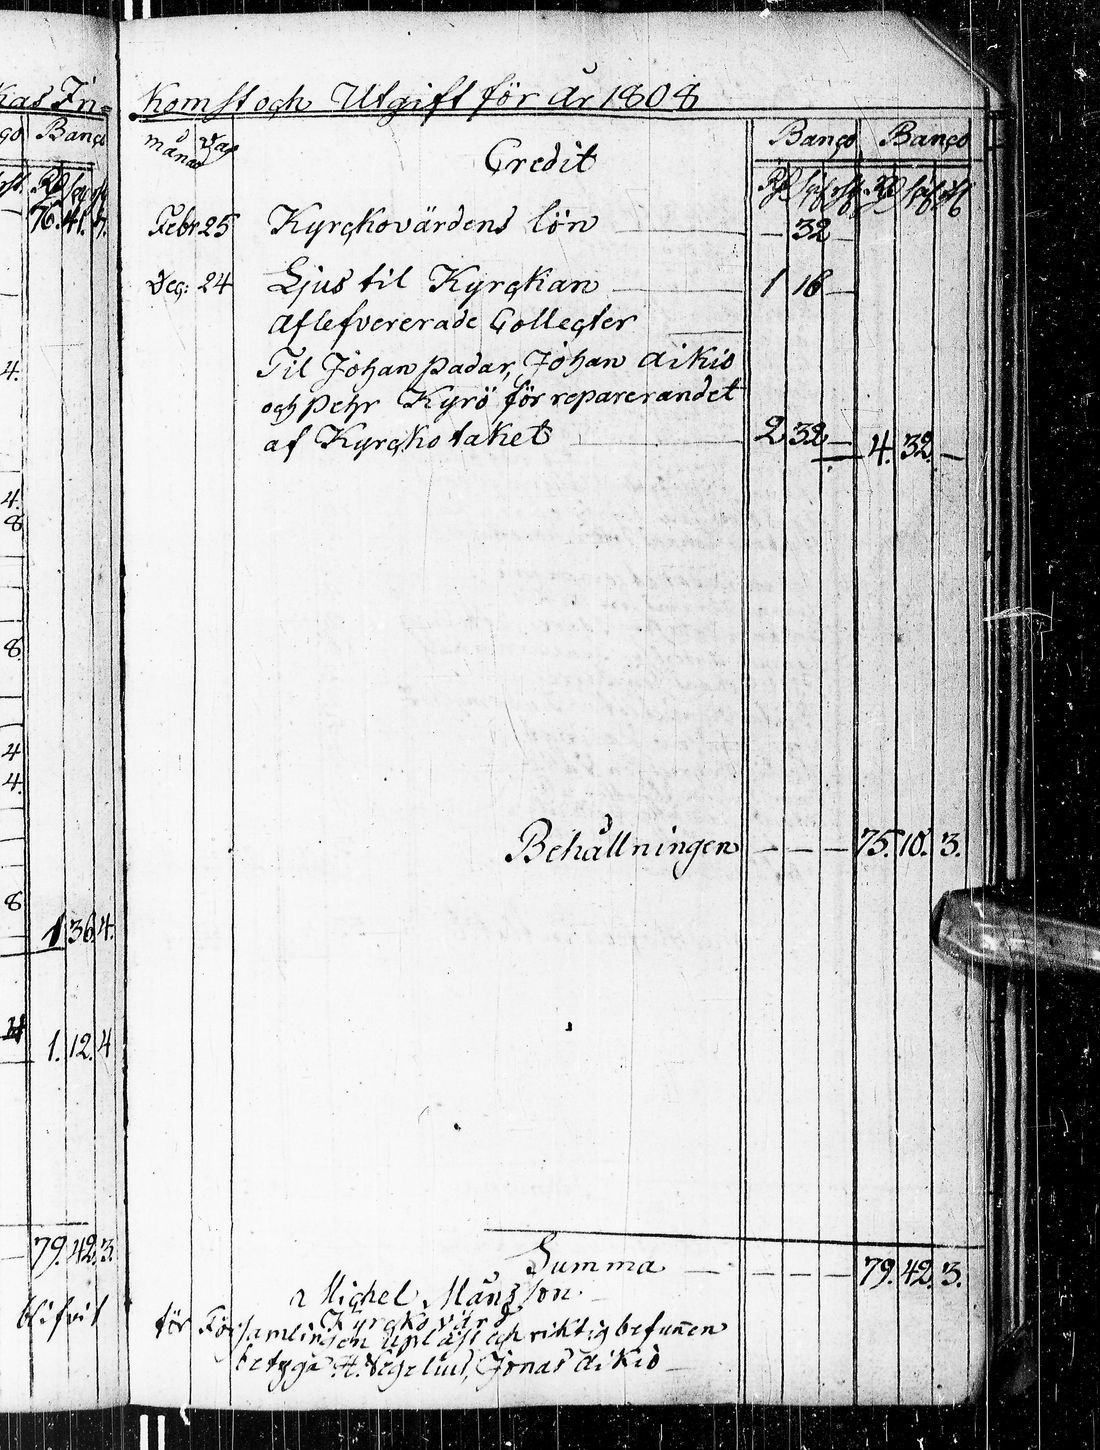 kas In=
komst och Utgift för år 1808
Banco
månad Dag Credit Banco Banco
Rd sk rst Rd sk rst
76. 41. 7.
Febr 25 Kyrckovärdens lön — 32 —
Dec: 24 Ljus til Kyrckan 1 16 —
Aflefvererade Collecter
4. Til Johan Padar, Johan Aikio
och Pehr Kyrö för reparerandet
af Kyrcko taket 2 32 — 4. 32. —
4.
8
8.
4
4.
Behållningen — — — 75. 10. 3.
8
1 36 4.
1. 12. 4
79. 42. 3.
Summa — — — — 79. 42. 3.
Michel Månsson
Kyrckovärd
blifvit för Församlingen upläst och riktig befunnen
betyga H. Degelius, Jonas Aikio